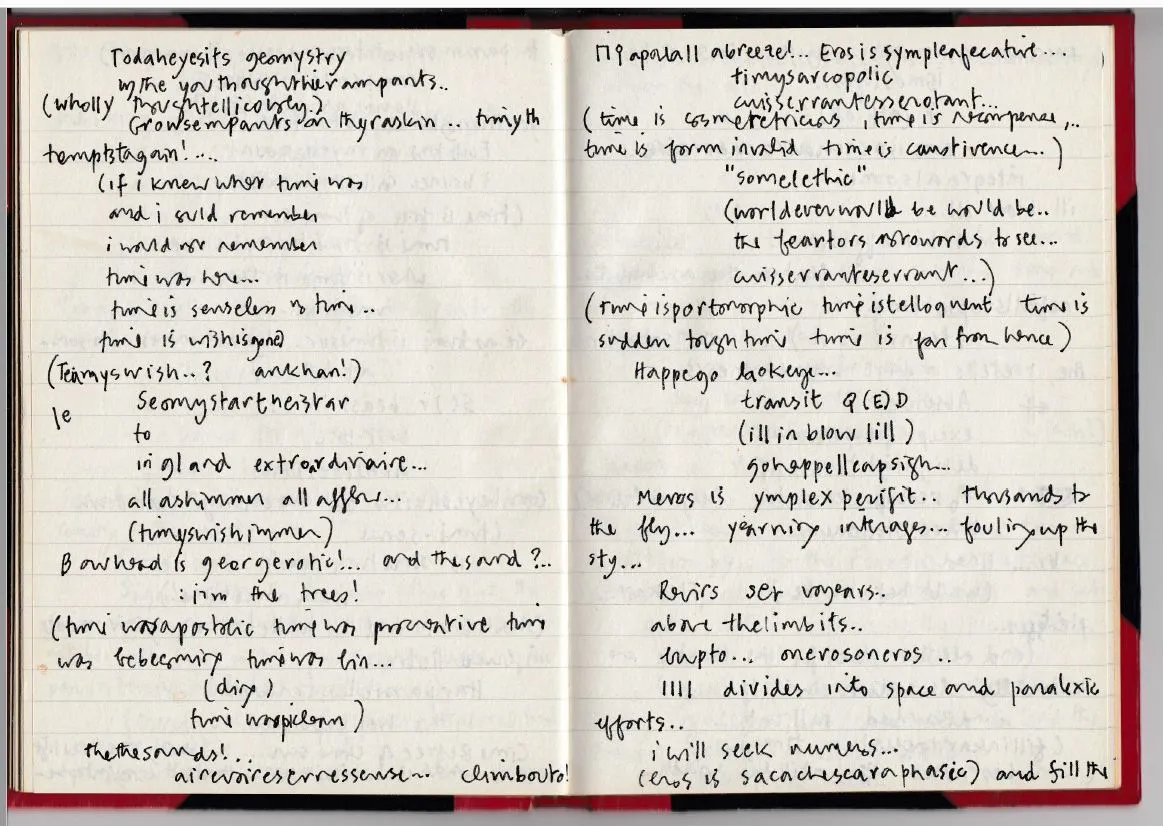 Todaheyesits geomystry
in the you thoughthierampants..
(wholly thoughtellicobvly.)
Growsempants on thyraskin... timyth
temptstagain!....
(if i knew what time was
and i suld remember
i would not remember
time was here...
time is senseless is time...
time is withisgone)
(Teamyswish..? ankhan!)
Seomystartheisbar
le
to
ingland extraordinaire...
allashimmer all affler...
(timyswishimmer)
Bowhead is georgerotic!... and thesand?..
:i'm the trees!
(time wasapostolic time was preventive time
was bebecoming time was bin...
(ding)
time waspiclean)
thethesands!...
airevoiresenressense... climbouto!
apovall abreeze!... Eros is symplenfecative...
timysarcopolic
cuisserrantessenotant...
(time is cosmetetricious, time is recompence,..
time is form invalid time is canstivence...)
"somelethic"
(worldeverwould be would be..
the feartors norowords to see...
cuisserranteserrant...)
(timeisportomorphic timeistelloquent time is
sudden toughtime time is far from hence)
Happego lackeye...
transit Q(E)D
(ill in blow lill)
gohappelleapsigh...
Meros is ymplex perifit.. thousands to
the fly... yearning interages... fouling up the
sty...
Revirs set voyears..
above thelimbits..
bupto... onerosoneros..
1111 divides into space and paralexic
efforts..
i will seek numeros...
(eros is sacachescaraphasic) and fill the